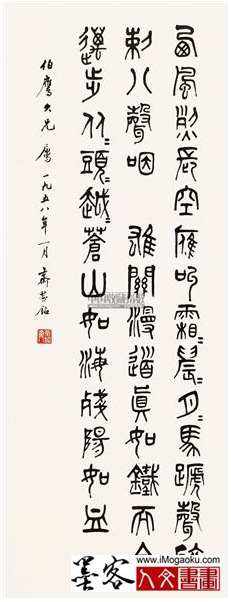 西風烈長空雁叫霜=晨=月=馬蹄聲碎
剌八聲咽 雄關漫道真如鐵而今
邁步从=頭=越=蒼山如海殘陽如血
伯鷹大兄 屬 一九五八年一月 齊燕銘
墨客
www.iMogaoku.com